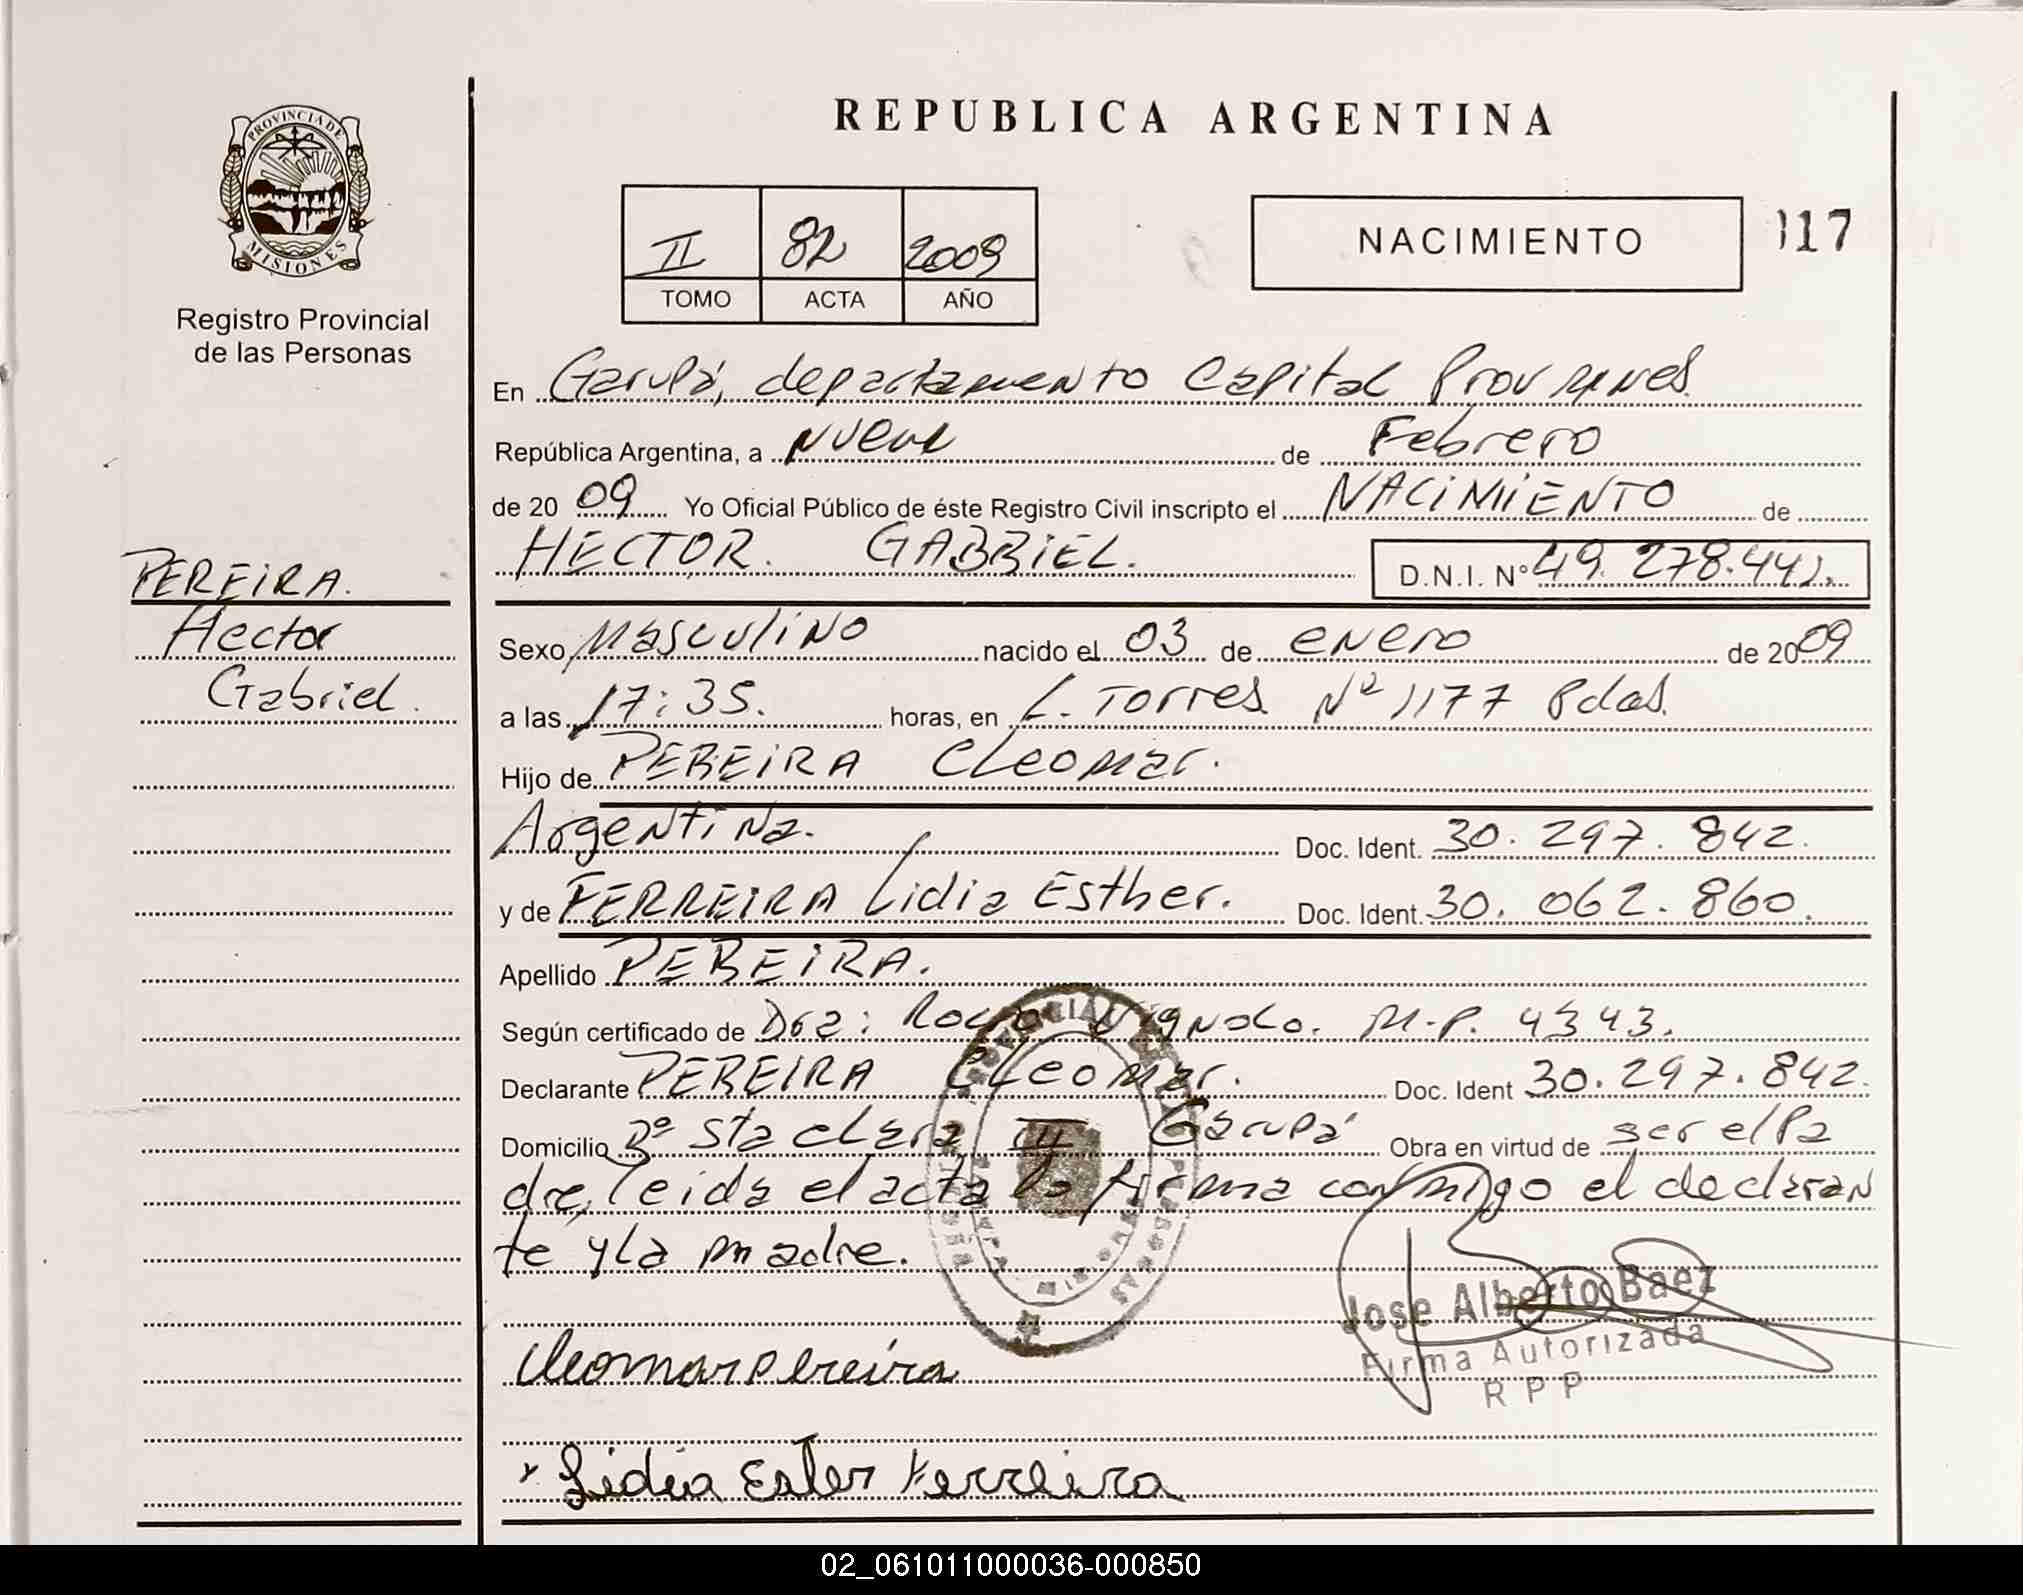 REPUBLICA ARGENTINA
PROVINCIA DE
MISIONES
Registro Provincial
de las Personas
II 82 2009
TOMO ACTA AÑO
NACIMIENTO
117
En Garupá, departamento Capital Prov
República Argentina, a nueve de Febrero
de 2009 Yo Oficial Público de éste Registro Civil inscripto el NACIMIENTO de
HECTOR. GABRIEL. D.N.I. Nº 49.278.442.
PEREIRA.
Hector
Gabriel.
Sexo Masculino nacido el 03 de enero de 2009
a las 17:35. horas, en L. Torres Nº 1177 Pdas.
Hijo de PEREIRA Cleomar.
Argentina. Doc. Ident. 30.297.842.
y de FERREIRA Lidia Esther. Doc. Ident. 30.062.860.
Apellido PEREIRA.
Según certificado de Dra: M.P. 4343.
Declarante PEREIRA Cleomar. Doc. Ident 30.297.842.
Domicilio Bº Sta Clara Garupá Obra en virtud de ser el Pa
dre, leida el acta la firma conmigo el declaran
te y la madre.
Jose Alberto Baez
Firma Autorizada
R P P
Cleomar pereira
Lidia Ester Ferreira
02_061011000036-000850